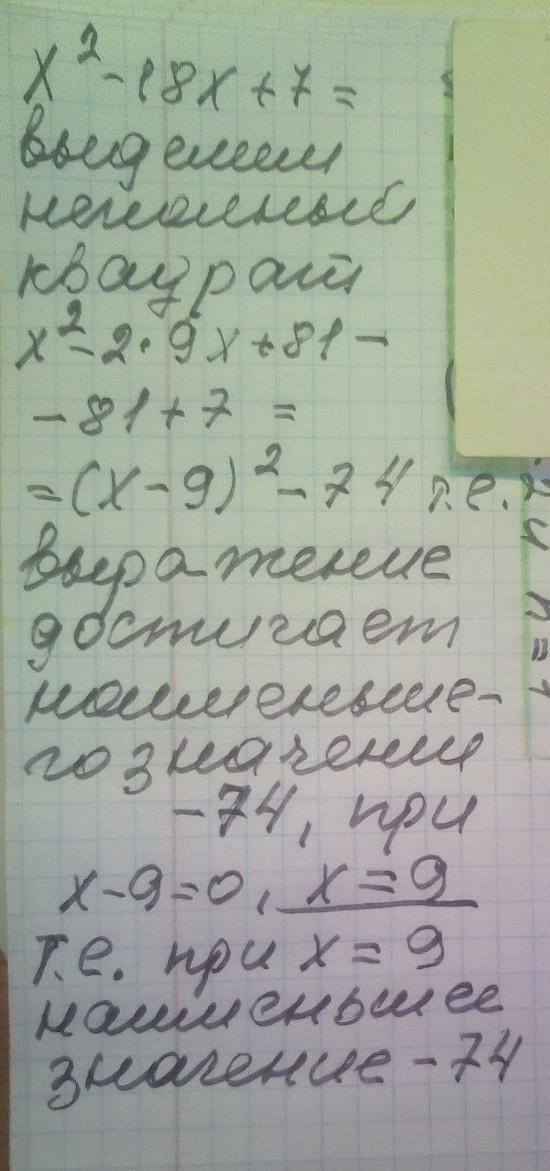 x² - 18x + 7 =
выделим
неполный
квадрат
x² - 2·9x + 81 -
- 81 + 7 =
= (x - 9)² - 74 т.е.
выражение
достигает
наименьше-
го значения
- 74, при
x - 9 = 0, x = 9
т.е. при x = 9
наименьшее
значение - 74